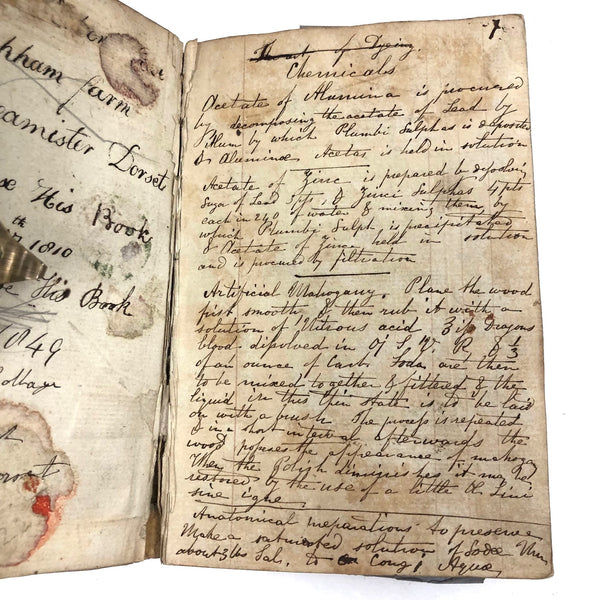 pham farm
eamister Dorset
His Book
th
1810
His Book
1849
Cottage
orset
7
The art of Dyeing.
Chemicals
Acetate of Alumina is procured
by decomposing the acetate of Lead by
Alum by which Plumbi Sulphas is deposited
& Aluminæ Acetas is held in solution
Acetate of Zinc is prepared by dissolving
Suga of Lead 5 pts. & Zinci Sulphas 4 pts
each in 240 of water & mixing them, by
which Plumbi Sulph, is precipitated
& Acetate of Zinc held in solution
and is procured by filtration
Artificial Mahogany. Plane the wood
first smooth & then rub it with a
solution of Nitrous acid 3 Dragons
blood dissolved in S. V. R & 1/3
of an ounce of Carb. Soda are then
to be mixed together & filtered & the
liquid in this thin state is to be laid
on with a brush The process is repeated
& in a short interval afterwards the
wood posses the appearance of mahogy
When the Polish diminishes it may be
restored by the use of a little Ol Lini
sine igne
Anatomical preparations to preserve
Make a saturated solution of Sodæ Mur
about 3 lbs Sal. to Cong 1 Aquæ